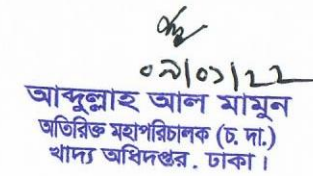 ০৯/০১/২২
আব্দুল্লাহ আল মামুন
অতিরিক্ত মহাপরিচালক (চ. দা.)
খাদ্য অধিদপ্তর. ঢাকা।